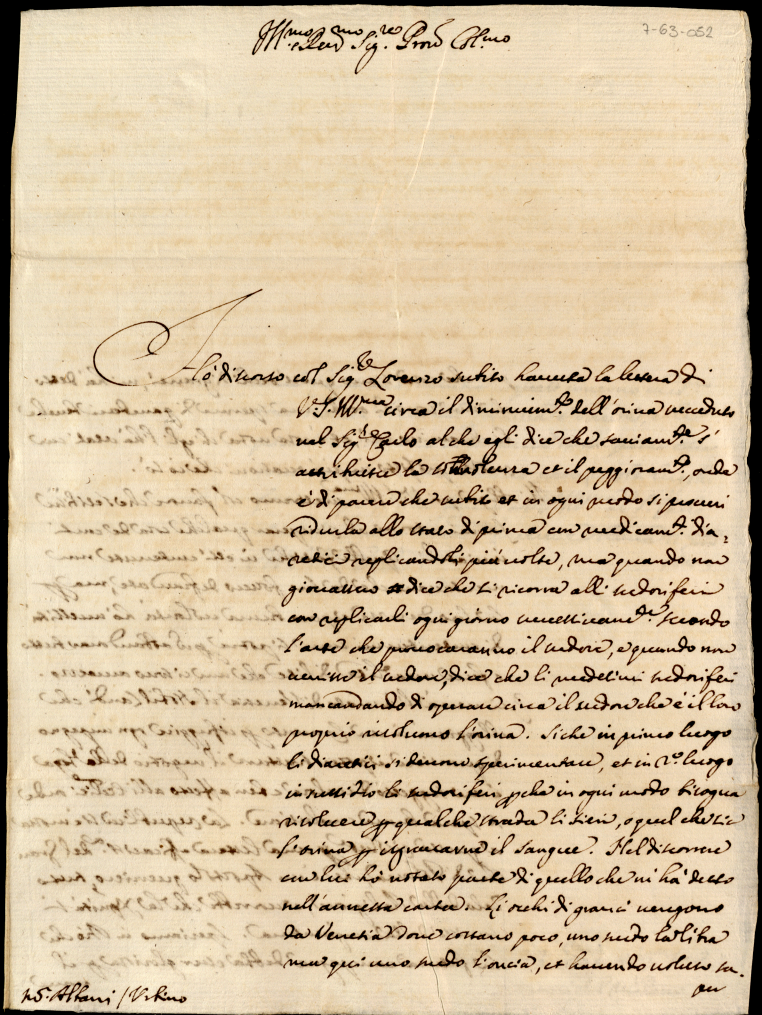 7-63-052
Ill.mo e Rev.mo Sig.re Pron Col.mo
Hò discorso col Sig.re Lorenzo subito havuta la lettera di
V.S. Ill.ma circa il diminuim.to dell'orina veceduto
nel Sig.re Carlo al che egli dice che saviam.te s'
attribuisce la et il peggioram.to, onde
è di parere che subito et in ogni modo si procuri
ridurla allo stato di prima con medicam.ti diu-
retici replicandoli più volte, ma quando non
giovassero dice che si ricorra alli sudoriferi
con replicarli ogni giorno secondo
l'arte che provocaranno il sudore, e quando non
venisse il sudore, dice che li medesimi sudoriferi
mancandando di operare circa il sudore che è il loro
proprio risolvono l'orina. Siche in primo luogo
li diuretici si devono sperimentare, et in 2.o luogo
in sussidio li sudoriferi p che in ogni modo bisogna
risolvere p qualche strada li sieri, o quel che sia
l'orina p isgravarne il sangue. Nel discorrere
con lui hò notato parte di quello che mi hà detto
nell'annessa carta. Li occhi di granci vengono
da Venetia dove costano poco, uno scudo la libra
ma qui uno scudo l'oncia, et havendo voluto sa-
per
Albani / Urbino